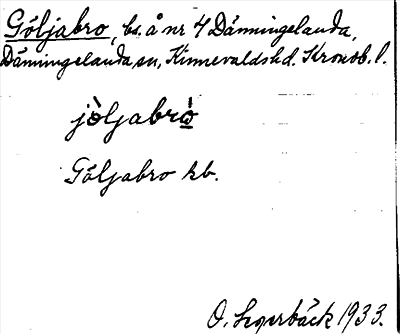 Göljabro, bs. å nr 4 Dänningelanda,
Dänningelanda sn, Kinnevaldshd. Kronob. l.
jöljabro
Göljabro kb.
O. Segerbäck 1933.